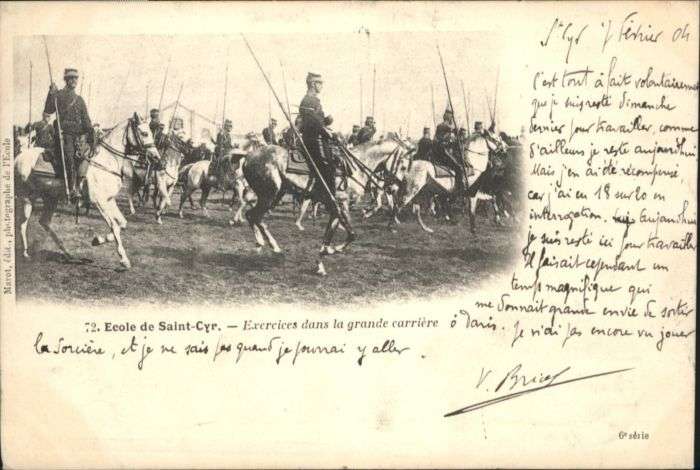 St Cyr 7 Février 04
C'est tout à fait volontairement
que je suis resté dimanche
dernier pour travailler, comme
d'ailleurs je reste aujourd'hui
Mais j'en ai été récompensé
car j'ai eu 18 sur 20 en
interrogation. aujourd'hui
je suis resté ici pour travailler
Il faisait cependant un
temps magnifique qui
me donnait grande envie de sortir
à Paris. Je n'ai pas encore vu jouer
la Sorcière, et je ne sais pas quand je pourrai y aller.
V. Bricy
72. Ecole de Saint-Cyr. — Exercices dans la grande carrière
6e série
Marot, édit., photographe de l'Ecole